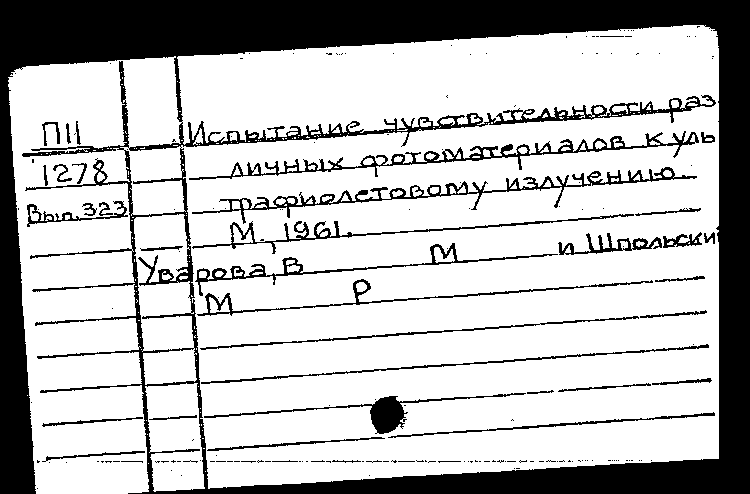 П11 Испытание чувствительности раз
1278 личных фотоматериалов к уль
Вып. 323 трафиолетовому излучению.
М., 1961.
Уварова, В М и Шпольский
М Р